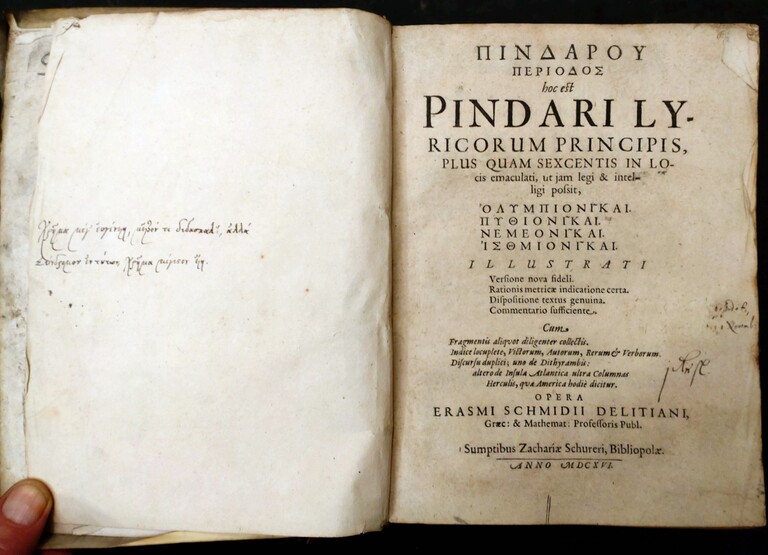 ΠΙΝΔΑΡΟΥ
ΠΕΡΙΟΔΟΣ
hoc est
PINDARI LY-
RICORUM PRINCIPIS,
PLUS QUAM SEXCENTIS IN LO-
cis emaculati, ut jam legi & intel-
ligi poſsit,
ὈΛΥΜΠΙΟΝῖΚΑΙ.
ΠΥΘΙΟΝῖΚΑΙ.
ΝΕΜΕΟΝῖΚΑΙ.
ἸΣΘΜΙΟΝῖΚΑΙ.
ILLUSTRATI
Verſione nova fideli.
Rationis metricæ indicatione certa.
Diſpoſitione textus genuina.
Commentario ſufficiente.
Cum
Fragmentis aliquot diligenter collectis.
Indice locuplete, Victorum, Autorum, Rerum & Verborum.
Diſcurſu duplici; uno de Dithyrambis:
altero de Inſula Atlantica ultra Columnas
Herculis, quæ America hodiè dicitur.
OPERA
ERASMI SCHMIDII DELITIANI,
Græc: & Mathemat: Profeſſoris Publ.
Sumptibus Zachariæ Schureri, Bibliopolæ.
ANNO MDCXVI.